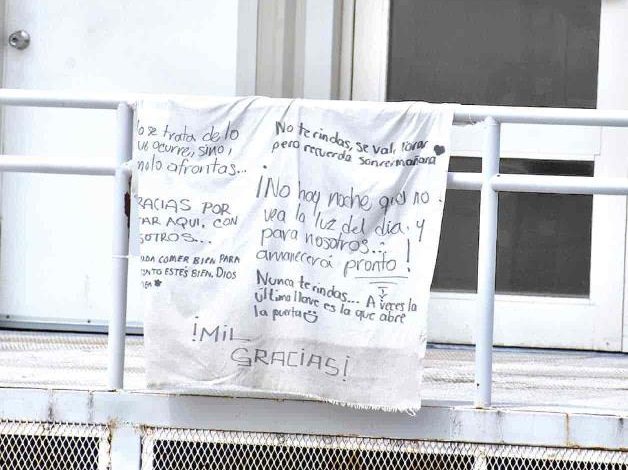 o se trata de lo
ue ocurre, sino,
mo lo afrontas...
RACIAS POR
TAR AQUI, CON
SOTROS...
DA COMER BIEN PARA
ONTO ESTÉS BIEN. DIOS
No te rindas, se val, llorar
pero recuerda sonreir mañana
¡No hay noche, que no
vea la luz del día. y
para nosotros...
amanecerá pronto!
Nunca te rindas... A veces la
última llave es la que abre
la puerta
¡MIL
GRACIAS!